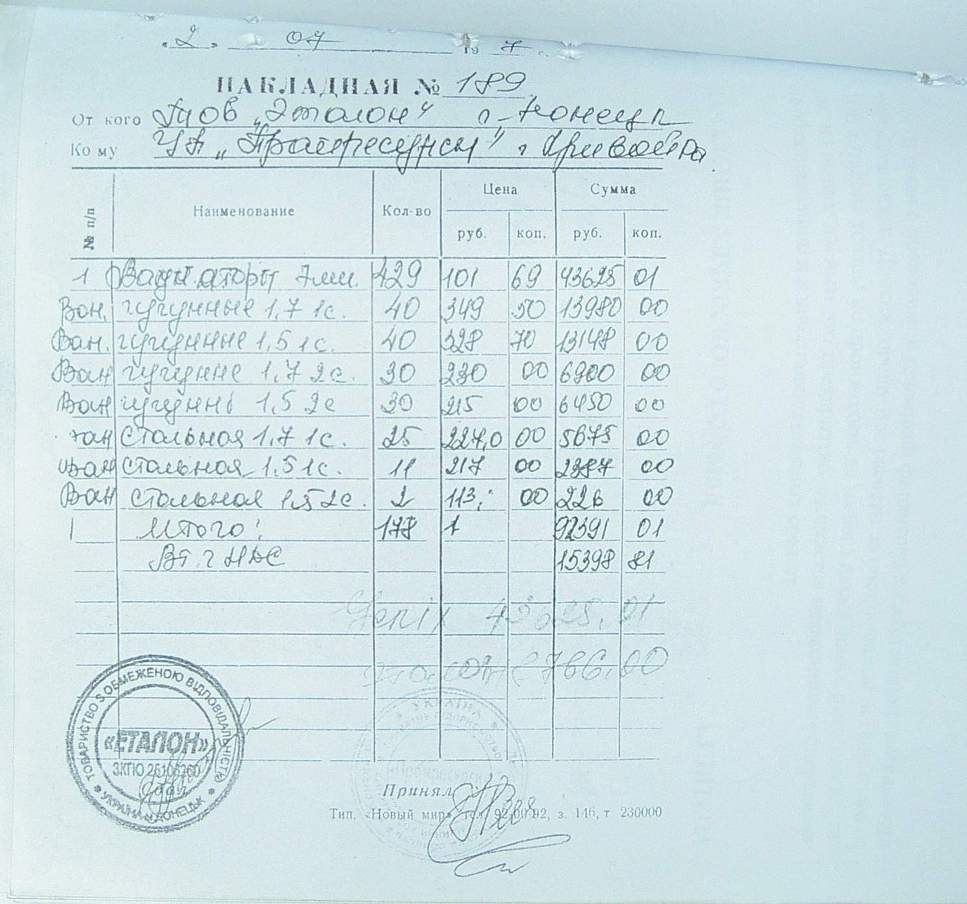 "2" 07 1997
НАКЛАДНАЯ № 189
От кого Тов „Эталон" г. Донецк
Кому ЧП „
№ п/п Наименование Кол-во Цена Сумма
руб. коп. руб. коп.
1 Радиаторы 7мм. 429 101 69 43625 01
Ван. чугунные 1,7 1с. 40 349 50 13980 00
Ван. чугунные 1,5 1с. 40 328 70 13148 00
Ван чугунне 1,7 2с. 30 230 00 6900 00
Ван чугуннь 1,5 2с 30 215 00 6450 00
ван стальная 1,7 1с. 25 227,0 00 5675 00
ван стальная 1,5 1с. 11 217 00 2387 00
Ван стальная 1,5 2с. 2 113. 00 226 00
Итого: 178 92391 01
Вт. ч НДС 15398 81
43625,01
ТОВАРИСТВО З ОБМЕЖЕНОЮ ВІДПОВІДАЛЬНІСТЮ
«ЕТАЛОН»
ЗКПО
УКРАЇНА м.ДОНЕЦЬК
УКРАЇНА
Принял
Тип. «Новый мир» тел. 92-00-92, з. 146, т 230000